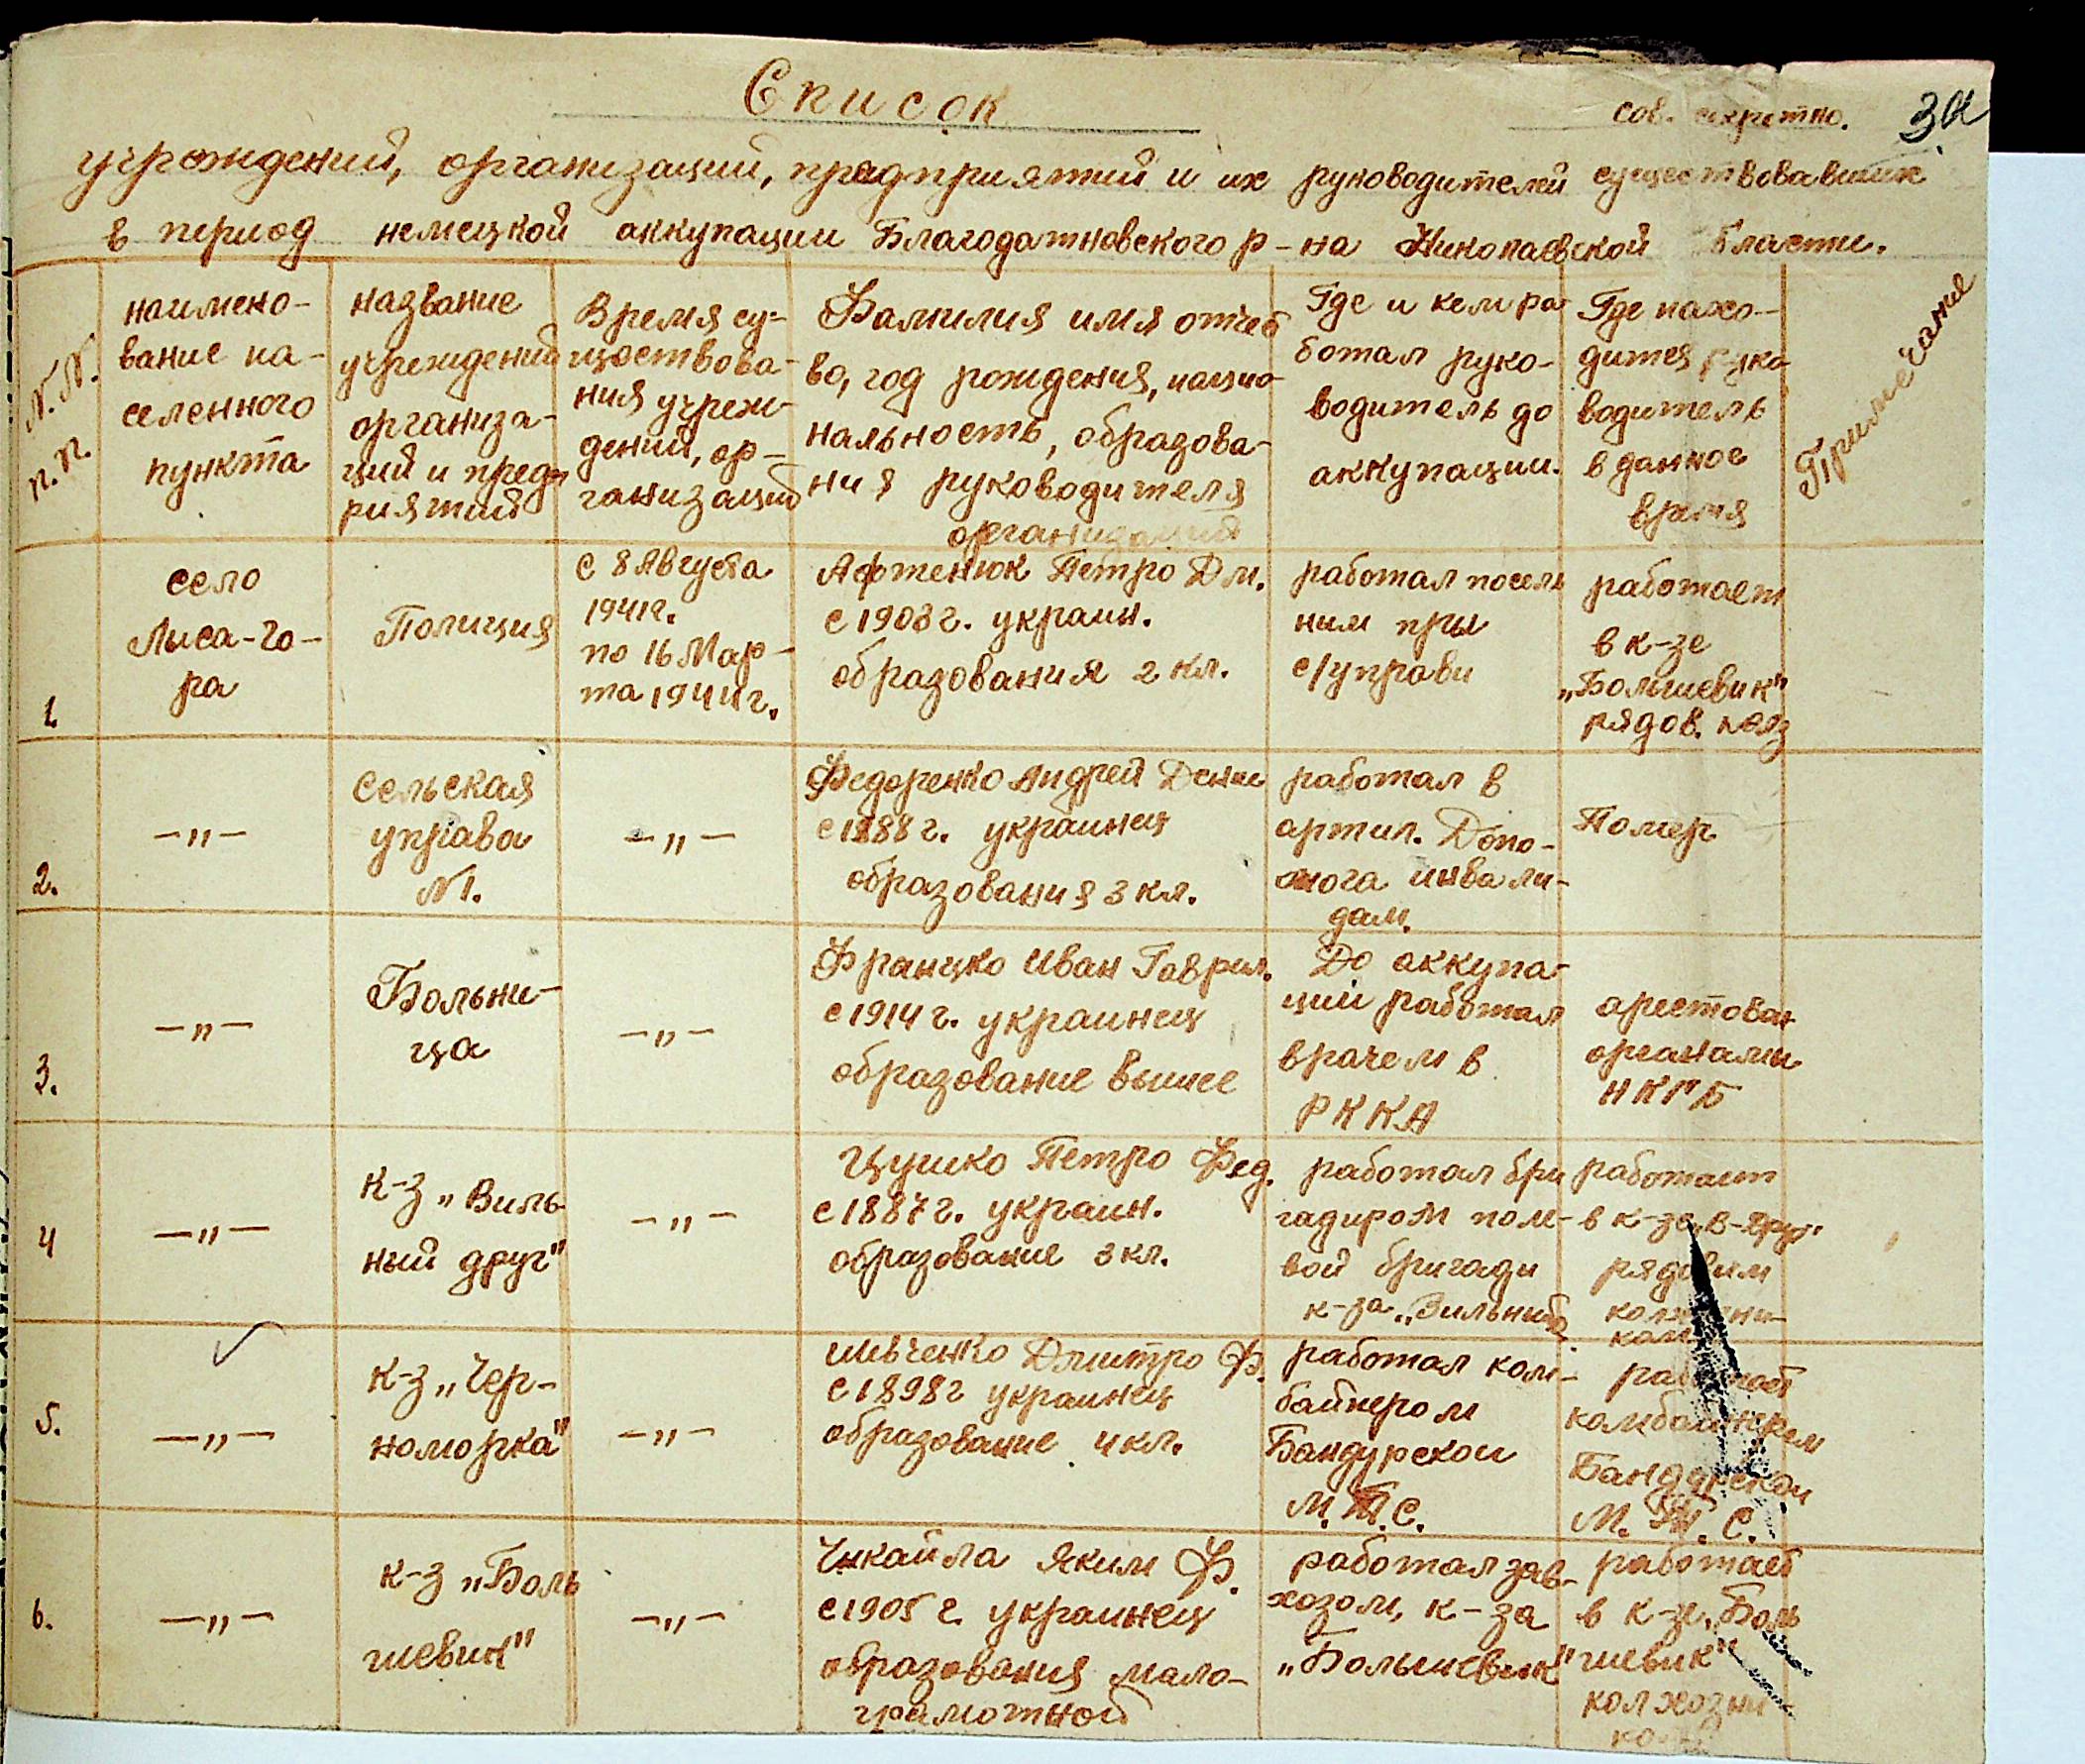 Список
сов. секретно.
учреждений, организаций, предприятий и их руководителей существовавших
в период немецкой аккупации Благодатновского р-на Николаевской области.
N.N.
п.п.
наимено-
вание на-
селенного
пункта
название
учреждений
организа-
ций и предп-
риятий
Время су-
ществова-
ния учреж-
дений, ор-
ганизаций
Фамилия имя отчест
во, год рождения, нацио-
нальность, образова-
ния руководителя
организаций
Где и кем ра
ботал руко-
водитель до
аккупации.
Где нахо-
дится руко
водитель
в данное
время
Примечание
1.
село
Лыса-го-
ра
Полиция
с 8 Августа
1941г.
по 16 Мар-
та 1944г.
Афтенюк Петро Дм.
с 1903г. украин.
образования 2 кл.
работал посыль
ним при
с/управи
работает
в к-зе
„Большевик"
рядов. колз
2.
—"—
Сельская
управа
N1.
—"—
Федоренко Андрей Денис
с 1888г. украинец
образования 3 кл.
работал в
артил. Допо-
мога инвали-
дам.
Помер
3.
—"—
Больни-
ца
—"—
Францко Иван Гаврил.
с 1914г. украинец
образование высшее
До аккупа-
ции работал
врачем в
РККА
арестован
органами
НКГБ
4
—"—
к-з „Виль
ный друг"
—"—
Цушко Петро Фед.
с 1887г. украин.
образование 3 кл.
работал бри
гадиром поле-
вой бригади
к-за „Вильний
работает
в к-зе „В-друг.
рядовим
колхозни-
ком
5.
—"—
к-з „Чер-
номорка"
—"—
Шевченко Дмитро Ф.
с 1898г украинец
образование 4 кл.
работал ком-
байнером
Бандурской
М.Т.С.
работает
комбайнером
Бандурской
М.Т.С.
6.
—"—
к-з „Боль
шевик"
—"—
Чикайла Яким Ф.
с 1905г. украинец
образования мало-
грамотной
работал зав-
хозом, к-за
„Большевик"
работает
в к-зе „Боль
шевик"
колхозни-
ком